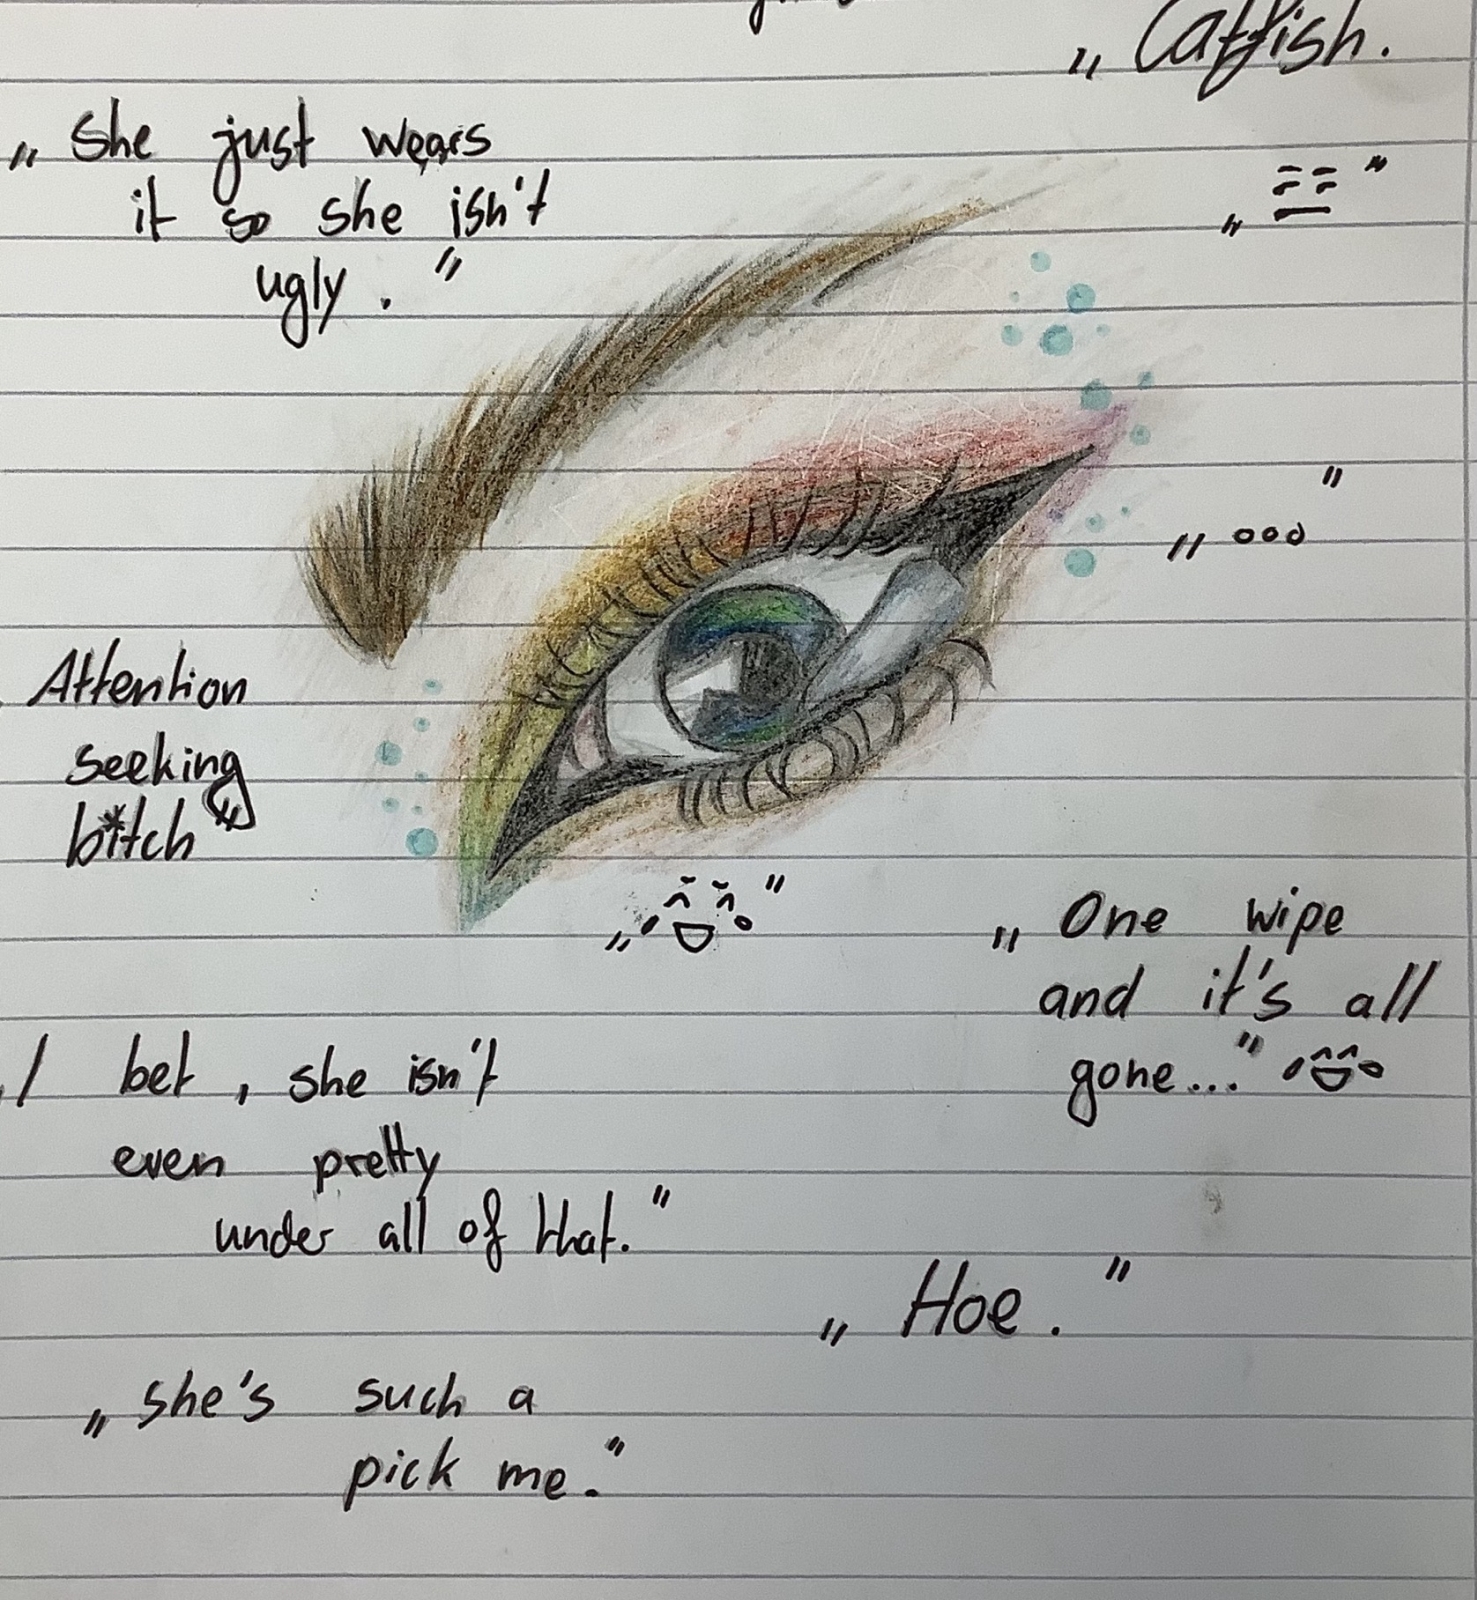 „Catfish.
„She just wears
it so she isn't
ugly."
„ooo"
Attention
seeking
b*tch"
„One wipe
and it's all
gone..."
I bet, she isn't
even pretty
under all of that."
„Hoe."
„she's such a
pick me."